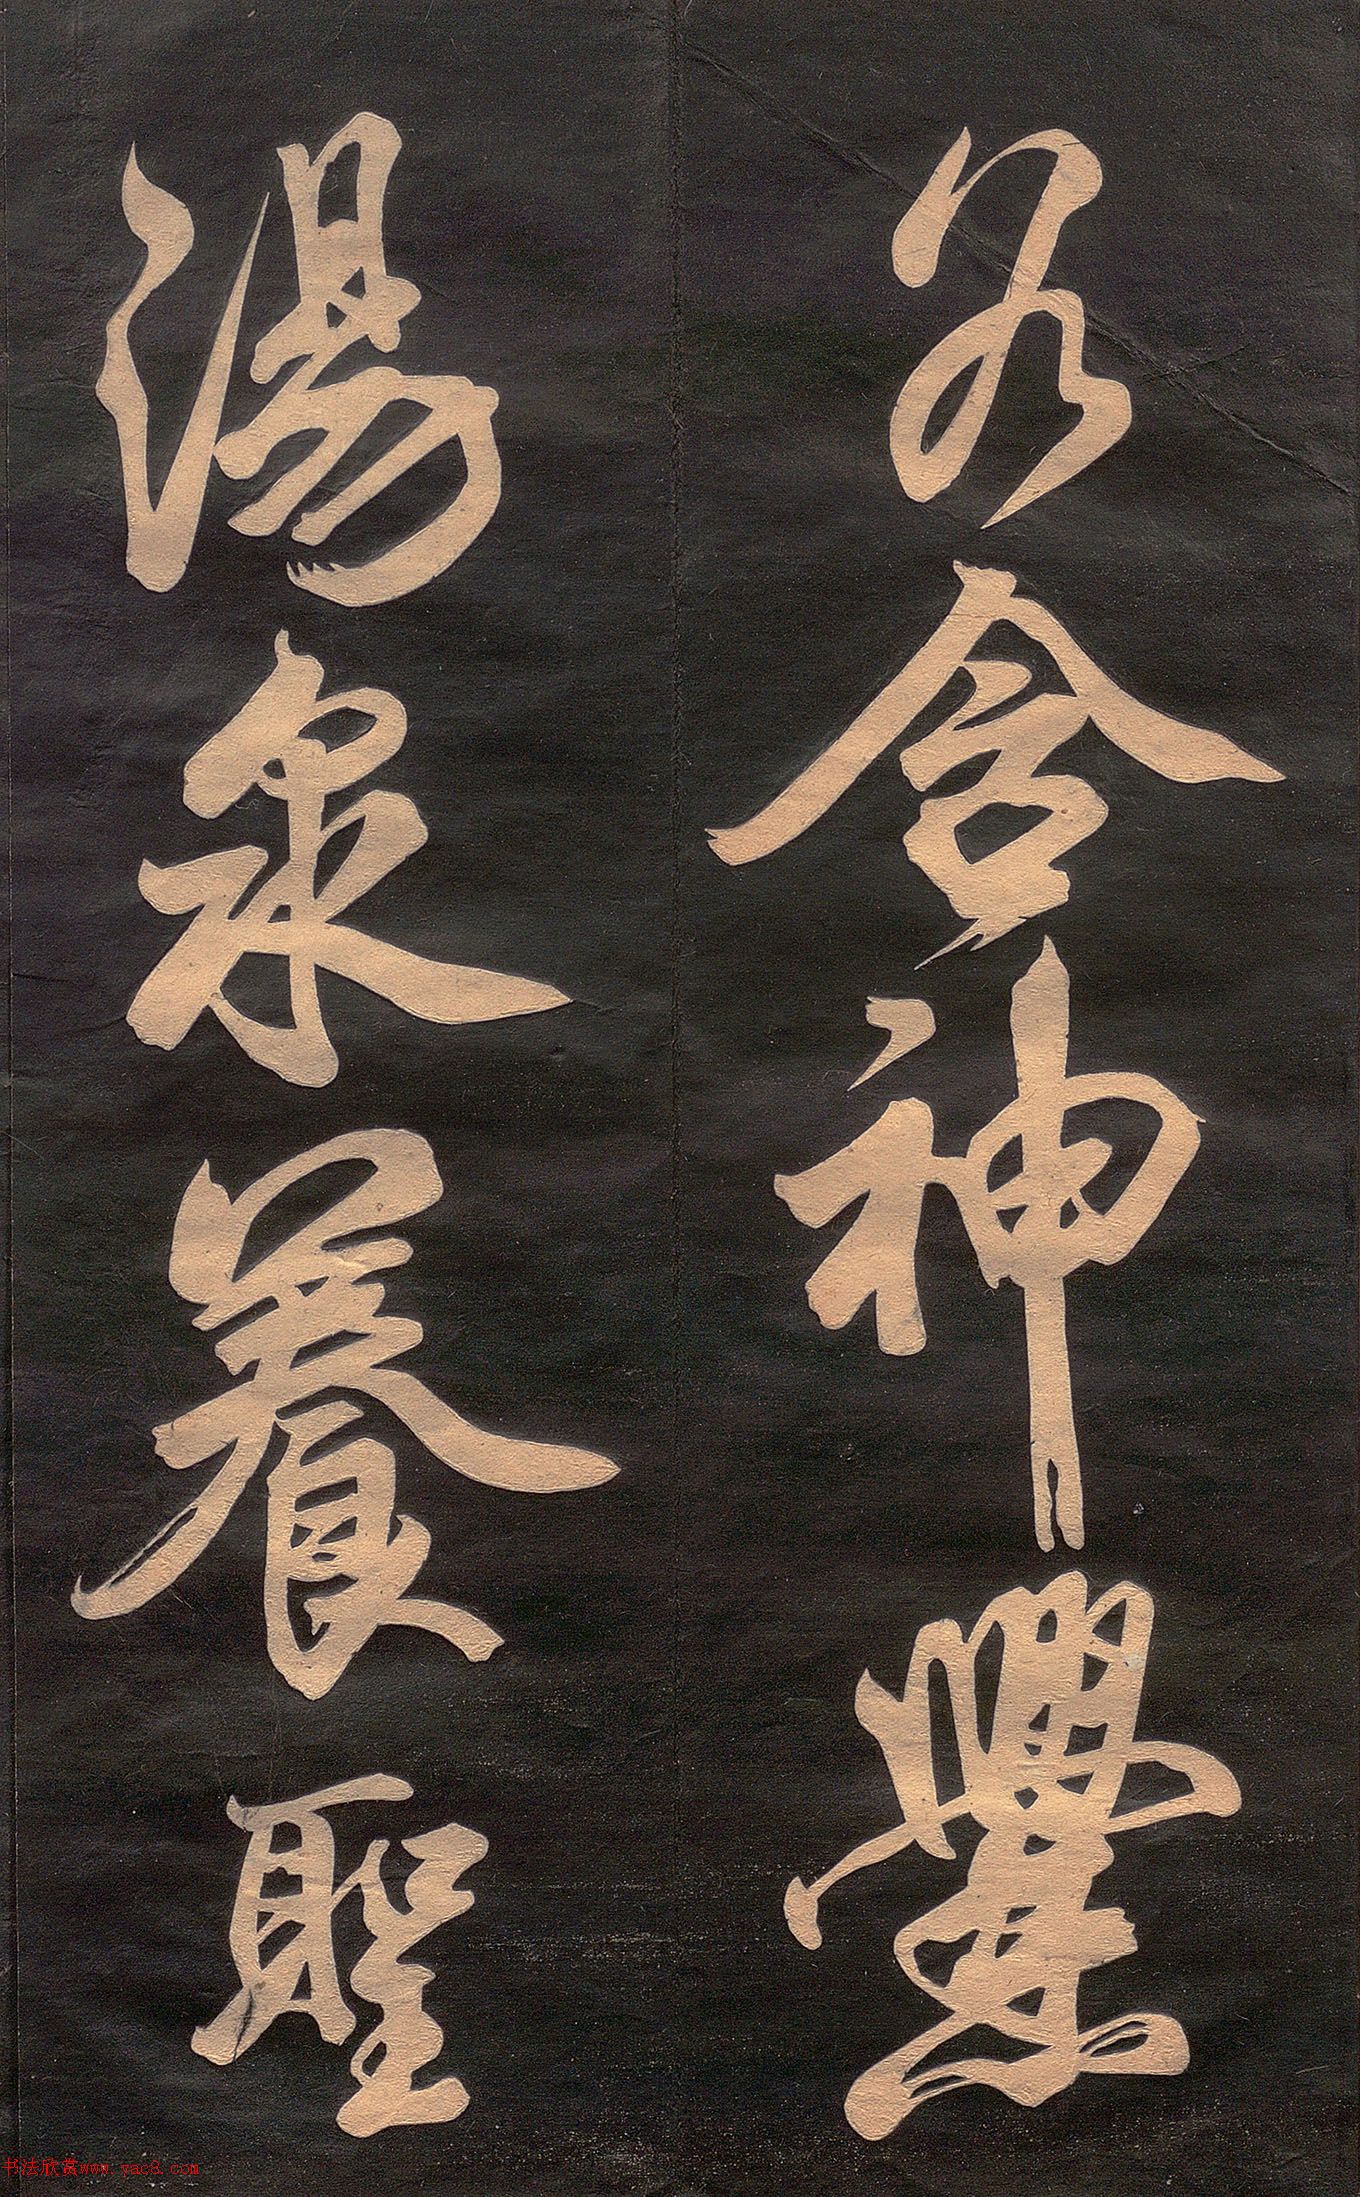 含神爨
湯泉養聖
书法欣赏www.yac8.com